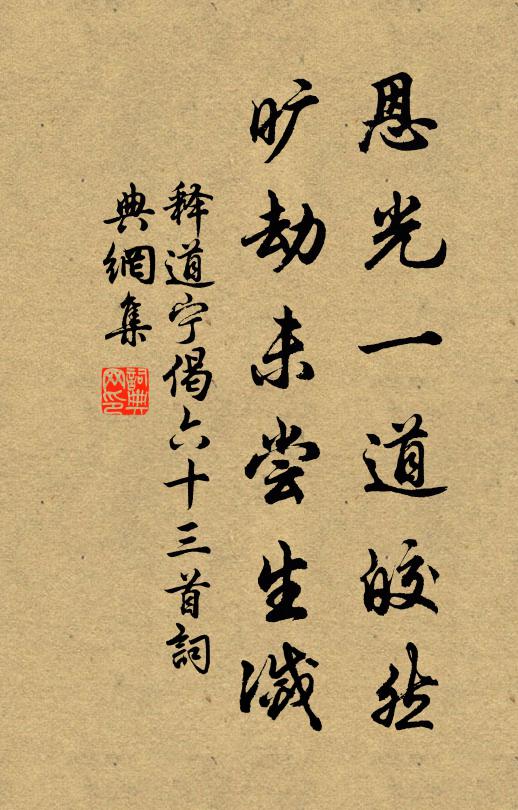 恩光一道皎然
旷劫未尝生灭
释道宁偈六十三首詞
典網集
詞典网印